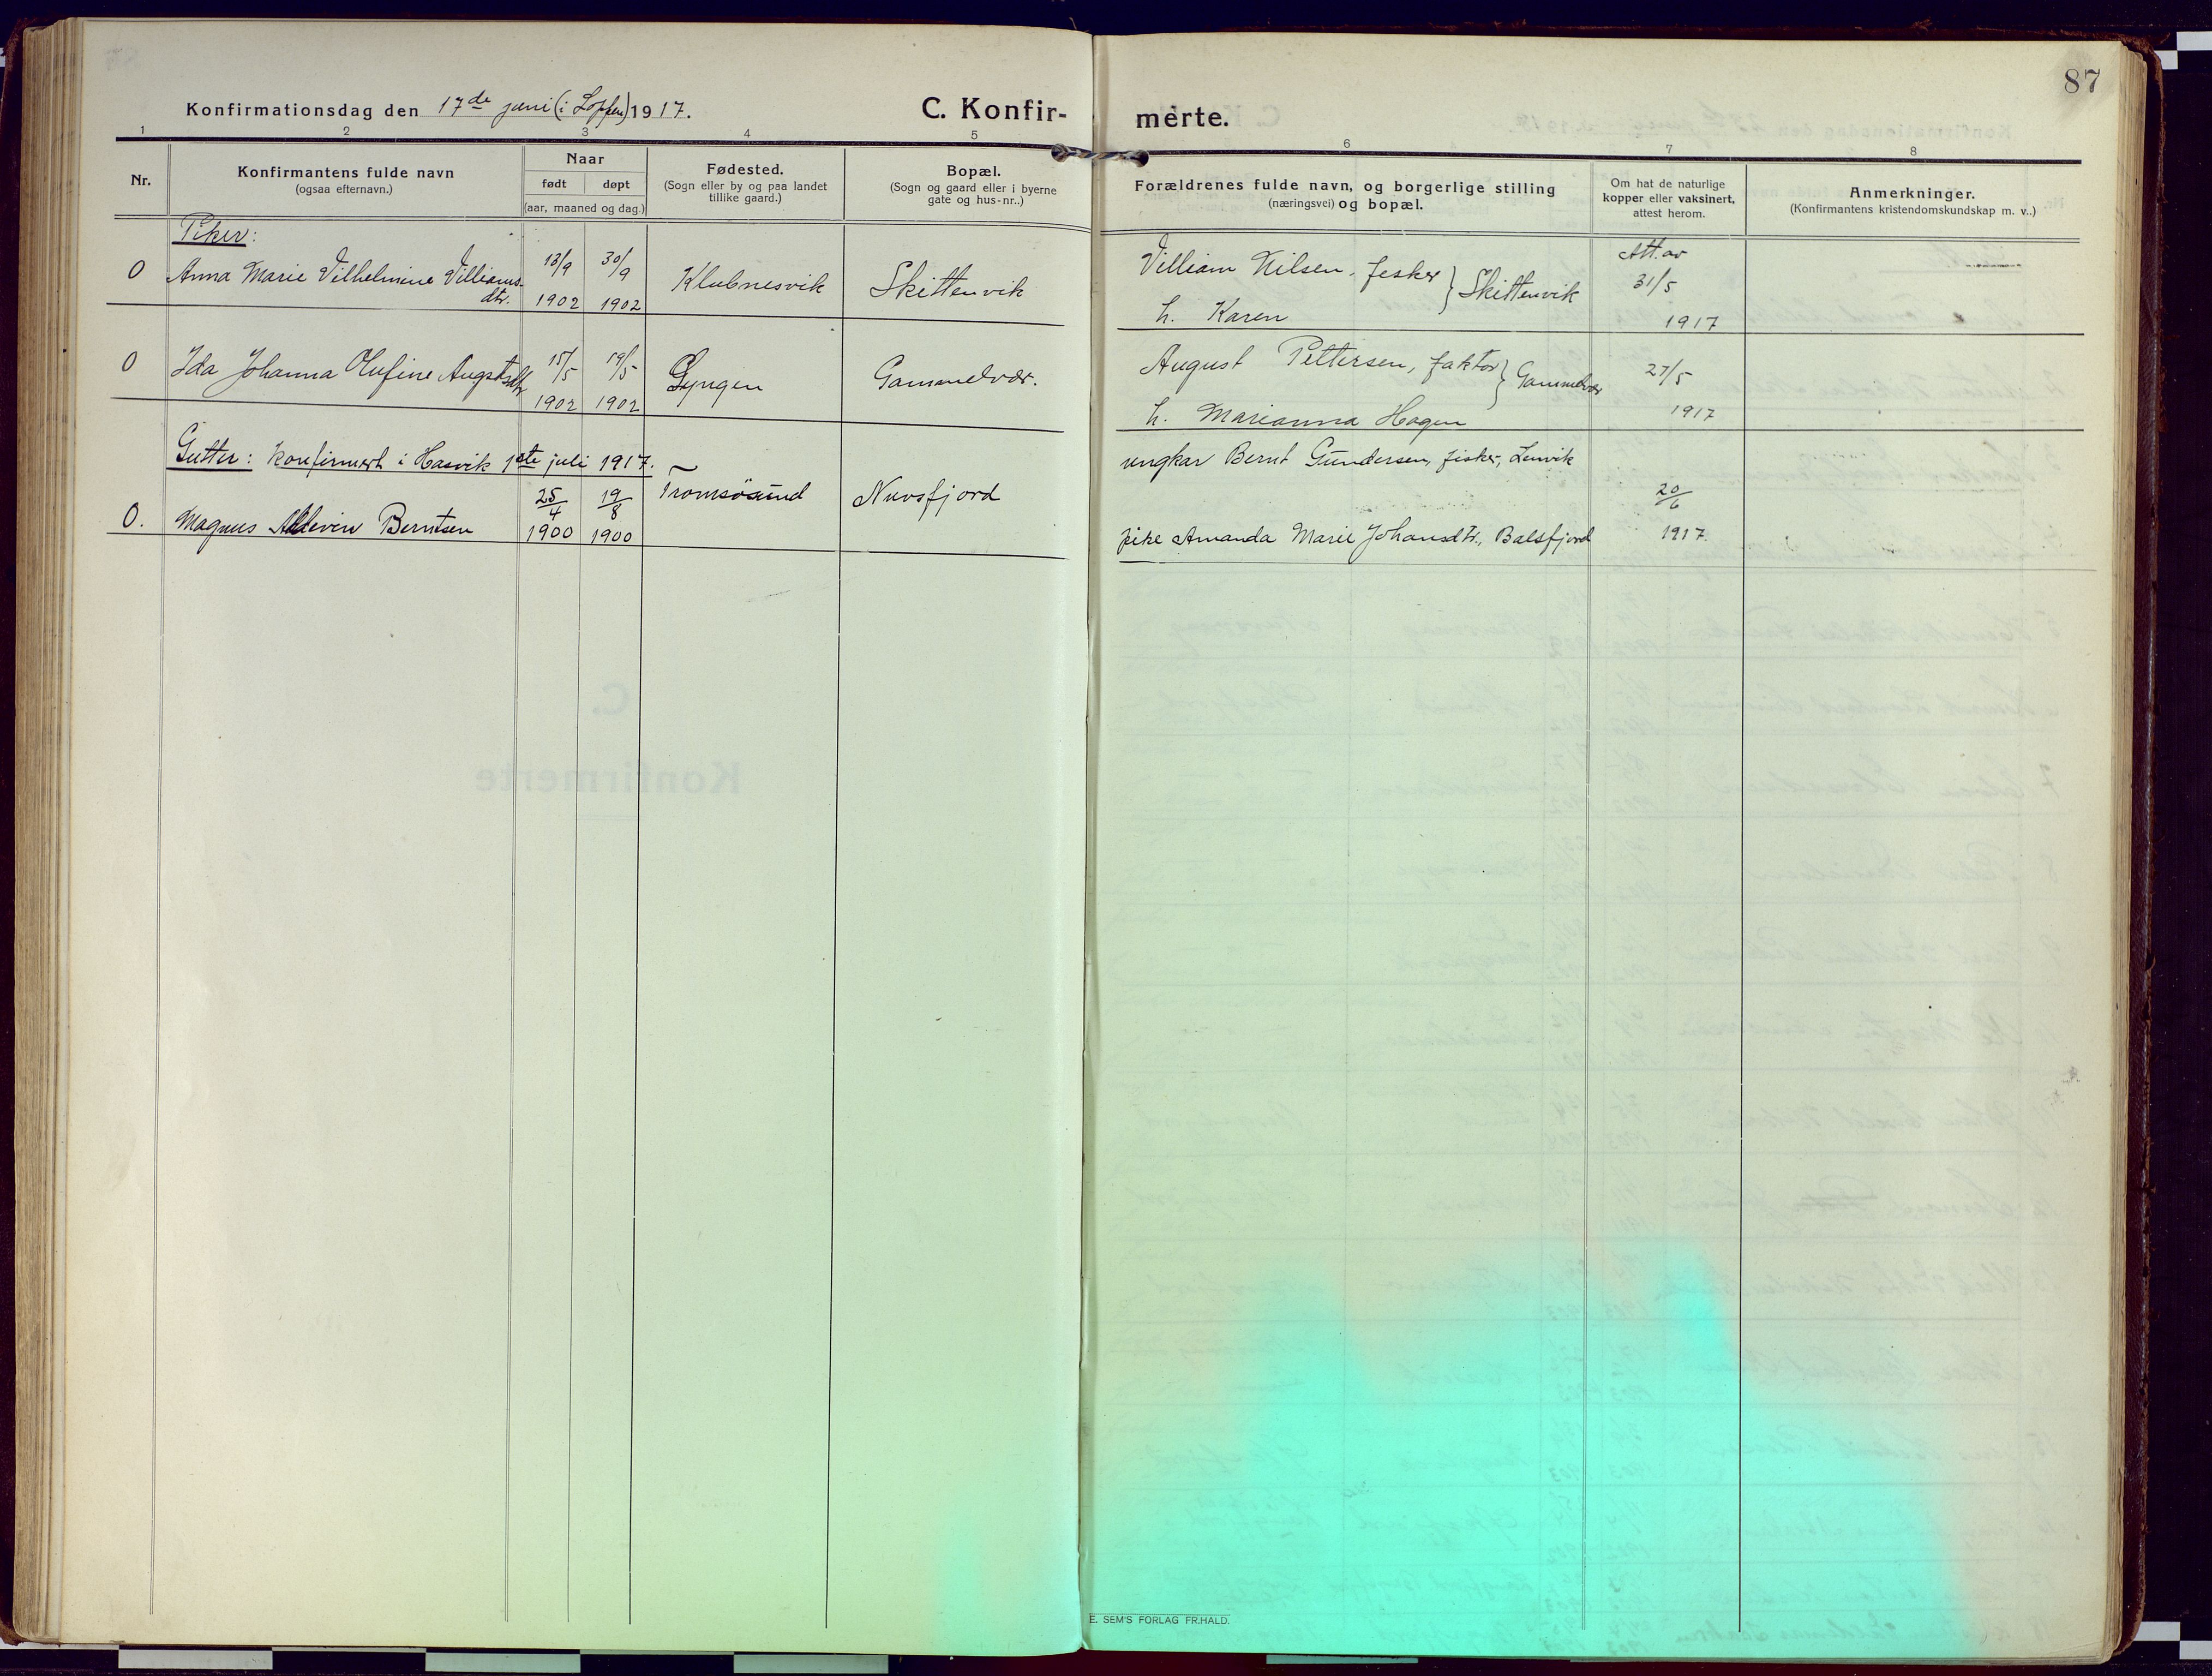 87
Konfirmationsdag den 17de juni (i Loppen) 1917.
C. Konfir-
merte.
1 2 3 4 5 6 7 8
Nr.
Konfirmantens fulde navn
(ogsaa efternavn.)
Naar
født døpt
(aar, maaned og dag.)
Fødested.
(Sogn eller by og paa landet
tillike gaard.)
Bopæl.
(Sogn og gaard eller i byerne
gate og hus-nr..)
Forældrenes fulde navn, og borgerlige stilling
(næringsvei) og bopæl.
Om hat de naturlige
kopper eller vaksinert,
attest herom.
Anmerkninger.
(Konfirmantens kristendomskundskap m. v..)
Piker:
0 Anna Marie Vilhelmine Villiams-
dtr.
13/9 1902
30/9 1902
Klubnesvik
Skittenvik
Villiam Nilsen, fisker } Skittenvik
h. Karen
Att. av
31/5
1917
0 Ida Johanna Olufine Augstsdtr
15/5 1902
19/5 1902
Lyngen
Gammelvær.
August Pettersen, faktor } Gammelvær
h. Marianna Hagen
27/5
1917
Gutter: Konfirmert i Hasvik 1ste juli 1917.
0. Magnus Aldevin Berntsen
25/4 1900
19/8 1900
Tromsøsund
Nuvsfjord
ungkar Bernt Gundersen, fisker, Lenvik
pike Amanda Marie Johansdtr., Balsfjord
20/6
1917.
E. SEM'S FORLAG FR.HALD.